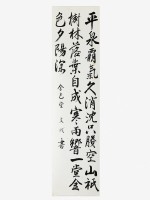 平泉霸氣久消沈只賸空山祇
樹林落葉自成寒雨響一堂金
色夕陽深
書